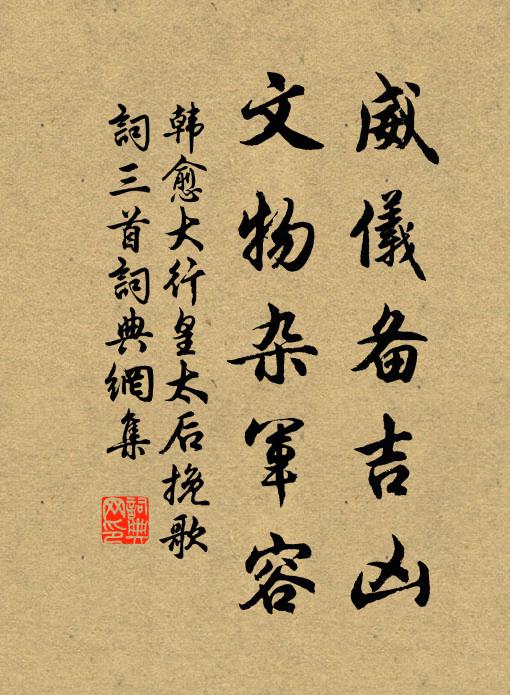 威儀备吉凶
文物杂军容
韩愈大行皇太后挽歌
詞三首詞典網集
詞典
网印